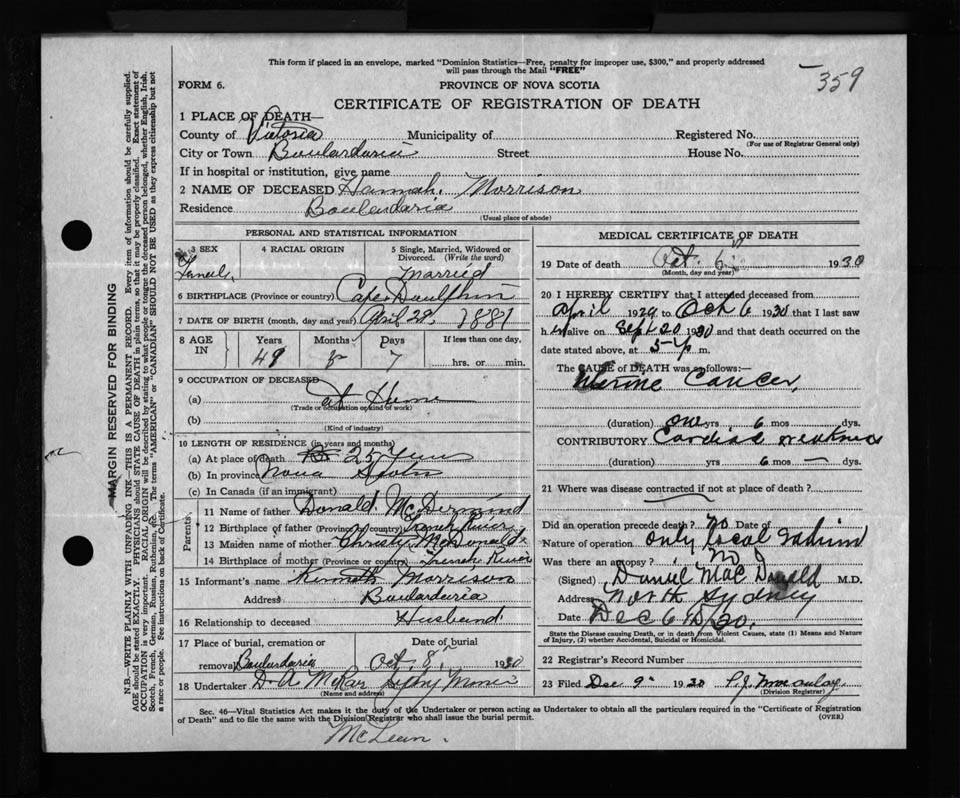 This form if placed in an envelope, marked "Dominion Statistics—Free, penalty for improper use, $300," and properly addressed
will pass through the Mail "FREE"
359
FORM 6.
PROVINCE OF NOVA SCOTIA
CERTIFICATE OF REGISTRATION OF DEATH
1 PLACE OF DEATH—
County of Victoria Municipality of Registered No.
(For use of Registrar General only)
City or Town Boulardaria Street House No.
If in hospital or institution, give name
2 NAME OF DECEASED Hannah Morrison
Residence Boulardaria
(Usual place of abode)
PERSONAL AND STATISTICAL INFORMATION
3 SEX 4 RACIAL ORIGIN 5 Single, Married, Widowed or Divorced. (Write the word)
Married
6 BIRTHPLACE (Province or country) Cape Daulfhin
7 DATE OF BIRTH (month, day and year) April 28, 1881
8 AGE IN Years Months Days If less than one day,
49 8 7 hrs. or min.
9 OCCUPATION OF DECEASED
(a) at Home
(Trade or occupation or kind of work)
(b)
(Kind of industry)
10 LENGTH OF RESIDENCE (in years and months)
(a) At place of death 25 Years
(b) In province Nova Scotia
(c) In Canada (if an immigrant)
Parents
11 Name of father Donald McDermind
12 Birthplace of father (Province or country) French River
13 Maiden name of mother Christy McDonald
14 Birthplace of mother (Province or country) French River
15 Informant's name Kenneth Morrison
Address Boulardaria
16 Relationship to deceased Husband
17 Place of burial, cremation or removal Date of burial
Boulardaria Oct. 8 1930
18 Undertaker D. A.
(Name and address)
MEDICAL CERTIFICATE OF DEATH
19 Date of death Oct. 6 1930
(Month, day and year)
20 I HEREBY CERTIFY that I attended deceased from
April 1929 to Oct 6 1930 that I last saw
h alive on Sept 20 1930 and that death occurred on
date stated above, at 5 p m.
The CAUSE of DEATH was as follows:—
Uterine Cancer,
(duration) one yrs 6 mos dys.
CONTRIBUTORY Cardiac weakness
(duration) yrs 6 mos — dys.
21 Where was disease contracted if not at place of death?
Did an operation precede death? no Date of
Nature of operation only local radium
Was there an autopsy? No
(Signed) Daniel MacDonald M.D.
Address North Sydney
Date Dec 6 /30.
State the Disease causing Death, or in death from Violent Causes, state (1) Means and Nature
of Injury, (2) whether Accidental, Suicidal or Homicidal.
22 Registrar's Record Number
23 Filed Dec 9 1930 P.J. Macaulay
(Division Registrar)
Sec. 46—Vital Statistics Act makes it the duty of the Undertaker or person acting as Undertaker to obtain all the particulars required in the "Certificate of Registration
of Death" and to file the same with the Division Registrar who shall issue the burial permit.
(OVER)
McLean.
MARGIN RESERVED FOR BINDING
N.B.—WRITE PLAINLY WITH UNFADING INK—THIS IS A PERMANENT RECORD. Every item of information should be carefully supplied.
AGE should be stated EXACTLY. PHYSICIANS should STATE CAUSE OF DEATH in plain terms, so that it may be properly classified. Exact statement of
OCCUPATION is very important. RACIAL ORIGIN will be described by stating to what people or tongue the deceased person belonged, whether English, Irish,
Scotch, French, German, Russian, Ruthenian, etc. The terms "AMERICAN" or "CANADIAN" SHOULD NOT BE USED as they express citizenship but not
a race or people. See instructions on back of Certificate.